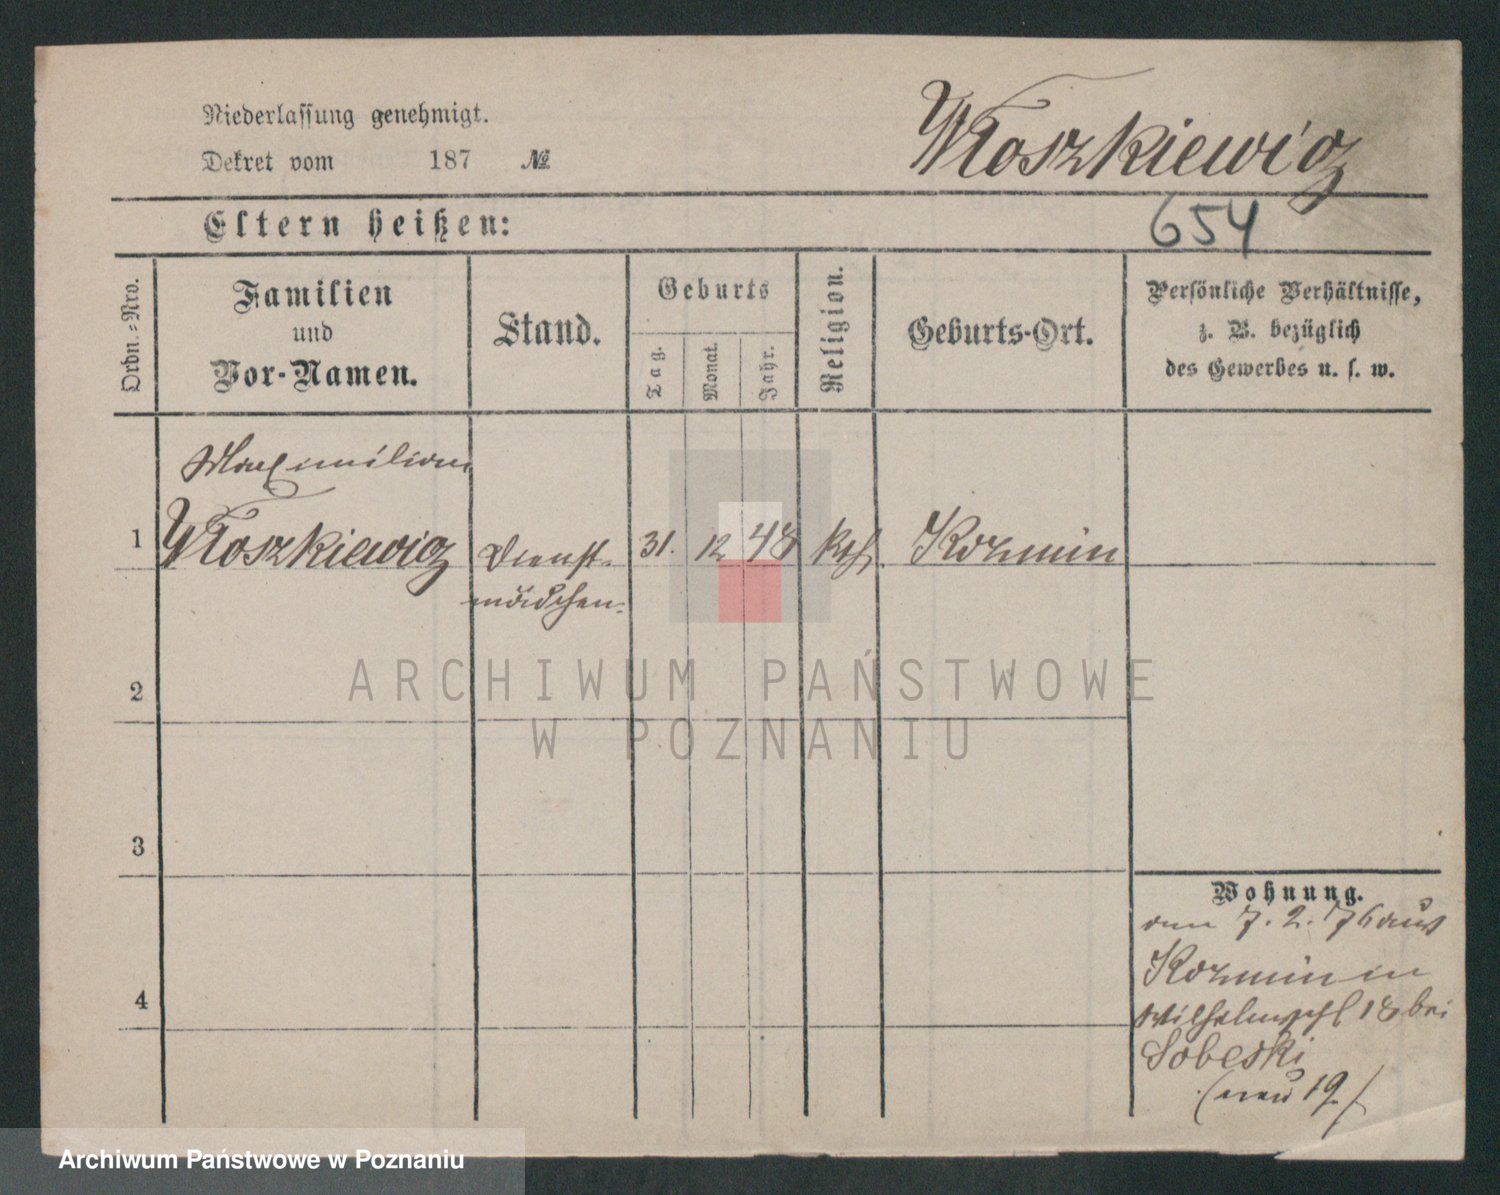 Niederlassung genehmigt.
Dekret vom 187 №
Włoszkiewicz
Eltern heißen:
654
Ordn.-Nro.
Familien
und
Vor-Namen.
Stand.
Geburts
Tag.
Monat.
Jahr.
Religion.
Geburts-Ort.
Persönliche Verhältnisse,
z. B. bezüglich
des Gewerbes u. s. w.
Maximilian
1 Włoszkiewicz Dienst- 31. 12 48 kth. Kozmin
mädchen.
2
ARCHIWUM PAŃSTWOWE
W POZNANIU
3
Wohnung.
am 7. 2. 76 aus
Kozmin in
4
Wilhelmspl 18 bei
Sobeski
(neu 19)
Archiwum Państwowe w Poznaniu